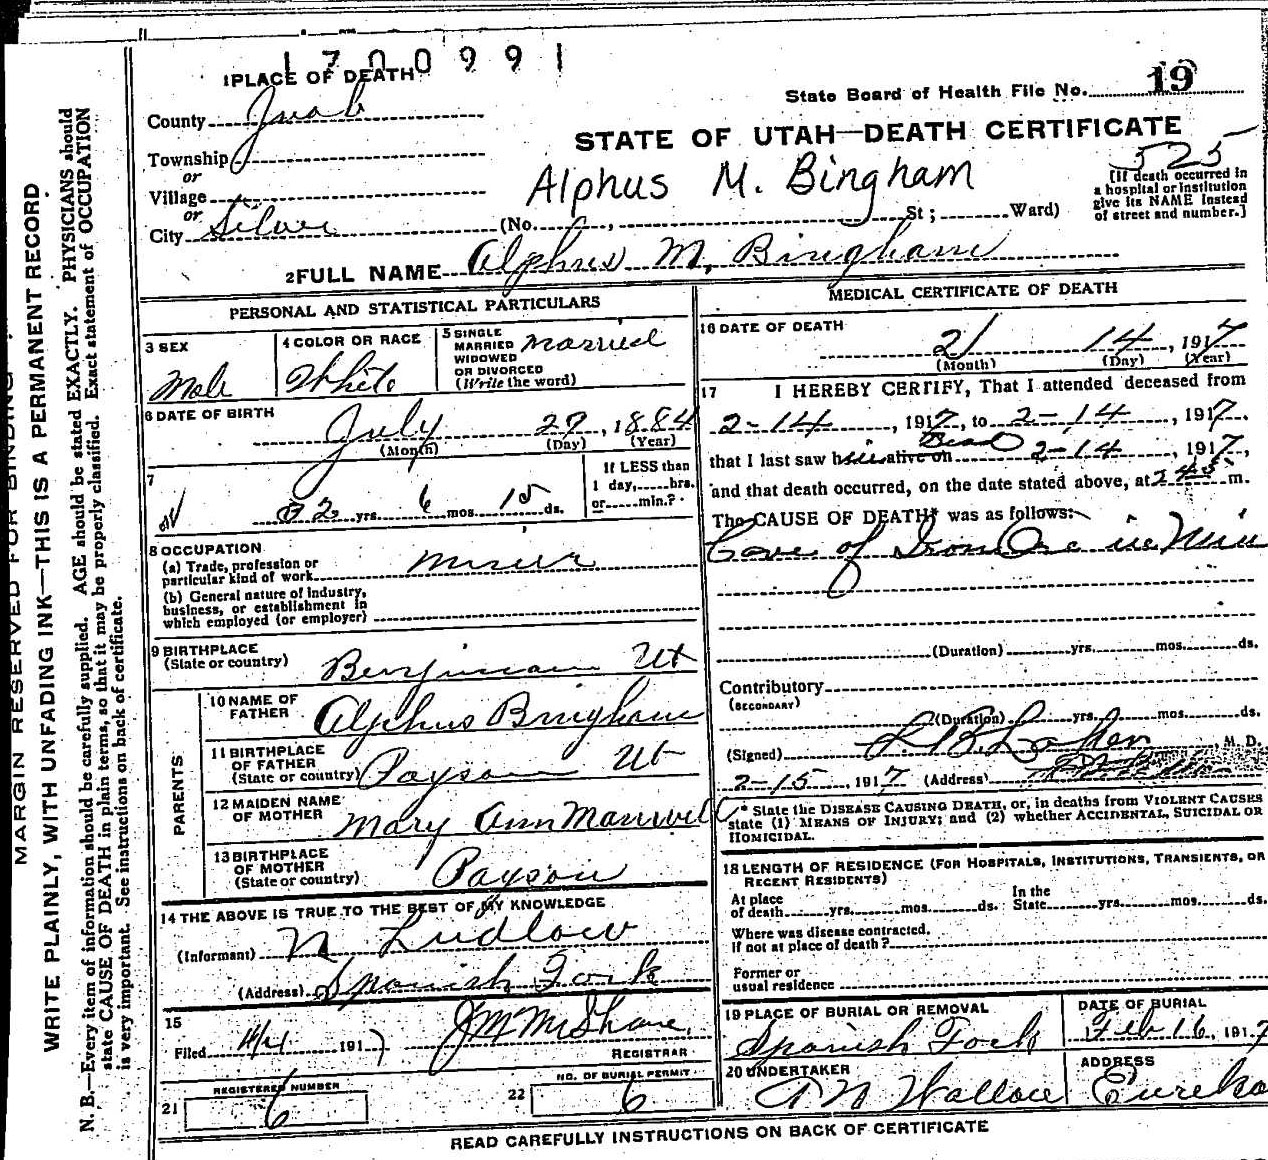 1700991
1 PLACE OF DEATH
State Board of Health File No. 19
County Juab
STATE OF UTAH—DEATH CERTIFICATE
Township
or
Village
or
City Silver
Alphus M. Bingham
525
(No. , St ; Ward)
[If death occurred in
a hospital or institution
give its NAME instead
of street and number.]
2 FULL NAME Alphus M. Bingham
PERSONAL AND STATISTICAL PARTICULARS
3 SEX
Male
4 COLOR OR RACE
White
5 SINGLE
MARRIED
WIDOWED
OR DIVORCED
(Write the word)
Married
6 DATE OF BIRTH
July 27, 1884
(Month) (Day) (Year)
7
32 yrs. 6 mos. 15 ds.
If LESS than
1 day, hrs.
or min.?
8 OCCUPATION
(a) Trade, profession or
particular kind of work Miner
(b) General nature of industry,
business, or establishment in
which employed (or employer)
9 BIRTHPLACE
(State or country) Benjamin Ut
PARENTS
10 NAME OF
FATHER Alphus Bingham
11 BIRTHPLACE
OF FATHER
(State or country) Payson Ut
12 MAIDEN NAME
OF MOTHER Mary Ann Manwell
13 BIRTHPLACE
OF MOTHER
(State or country) Payson
14 THE ABOVE IS TRUE TO THE BEST OF MY KNOWLEDGE
(Informant) N Ludlow
(Address) Spanish Fork
15
Filed 1917 J M McShane
REGISTRAR
REGISTERED NUMBER
21 6
NO. OF BURIAL PERMIT
22 6
MEDICAL CERTIFICATE OF DEATH
16 DATE OF DEATH
2 14, 1917
(Month) (Day) (Year)
17 I HEREBY CERTIFY, That I attended deceased from
2-14, 1917, to 2-14, 1917.
that I last saw him alive on Dead 2-14, 1917,
and that death occurred, on the date stated above, at 245 m.
The CAUSE OF DEATH* was as follows:
Cave of Iron Ore in Min
(Duration) yrs. mos. ds.
Contributory
(SECONDARY)
(Duration) yrs. mos. ds.
(Signed) , M. D.
2-15, 1917 (Address)
* State the DISEASE CAUSING DEATH, or, in deaths from VIOLENT CAUSES
state (1) MEANS OF INJURY; and (2) whether ACCIDENTAL, SUICIDAL OR
HOMICIDAL.
18 LENGTH OF RESIDENCE (FOR HOSPITALS, INSTITUTIONS, TRANSIENTS, OR
RECENT RESIDENTS)
At place
of death yrs. mos. ds.
In the
State yrs. mos. ds.
Where was disease contracted.
If not at place of death?
Former or
usual residence
19 PLACE OF BURIAL OR REMOVAL
Spanish Fork
DATE OF BURIAL
Feb 16, 1917
20 UNDERTAKER
A N Wallace
ADDRESS
Eureka
READ CAREFULLY INSTRUCTIONS ON BACK OF CERTIFICATE
MARGIN RESERVED FOR BINDING
WRITE PLAINLY, WITH UNFADING INK—THIS IS A PERMANENT RECORD
N. B.—Every item of information should be carefully supplied. AGE should be stated EXACTLY. PHYSICIANS should
state CAUSE OF DEATH in plain terms, so that it may be properly classified. Exact statement of OCCUPATION
is very important. See instructions on back of certificate.